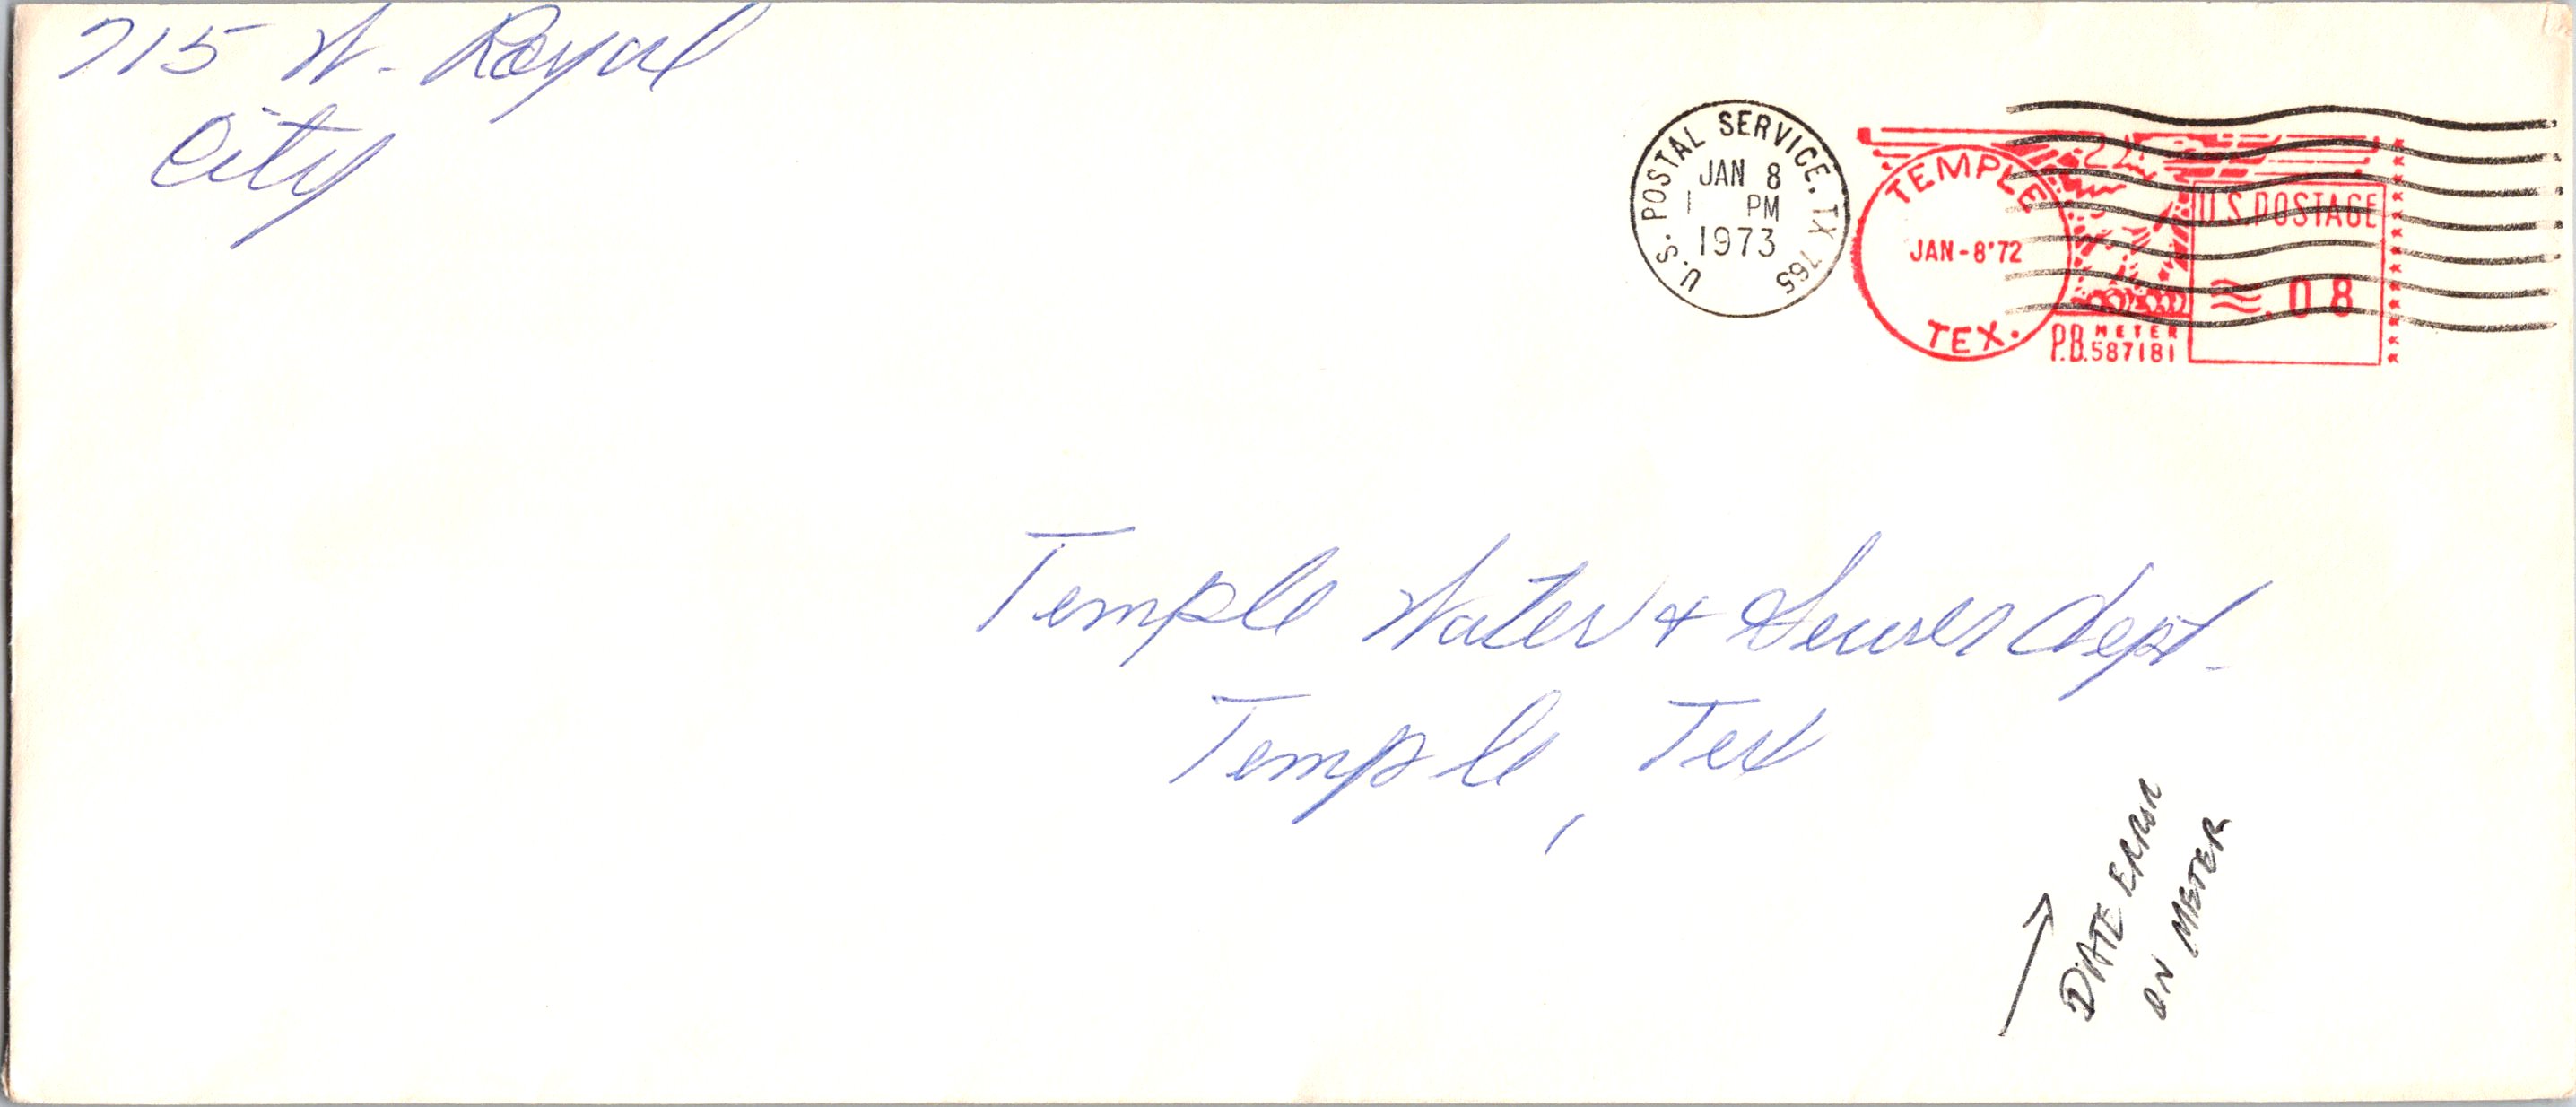 715 W. Royal
City
U.S. POSTAL SERVICE, TX 765
JAN 8
1 PM
1973
TEMPLE
JAN-8'72
TEX.
P.B. METER
587181
U.S. POSTAGE
≈.08
Temple Water & Sewer Dept.
Temple, Tex
DATE ERROR
ON METER